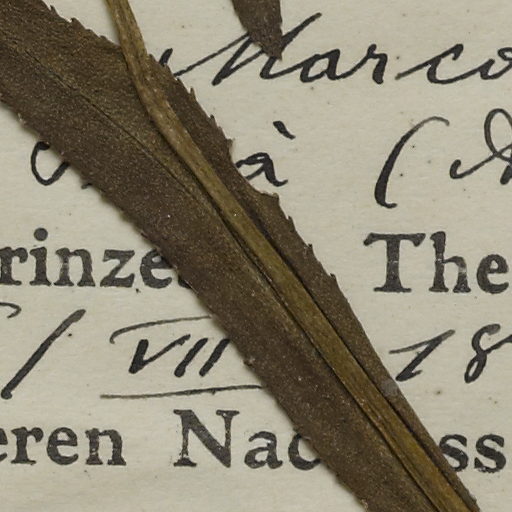 Marco
à (
rinze The
/ VII 18
eren Nac ss